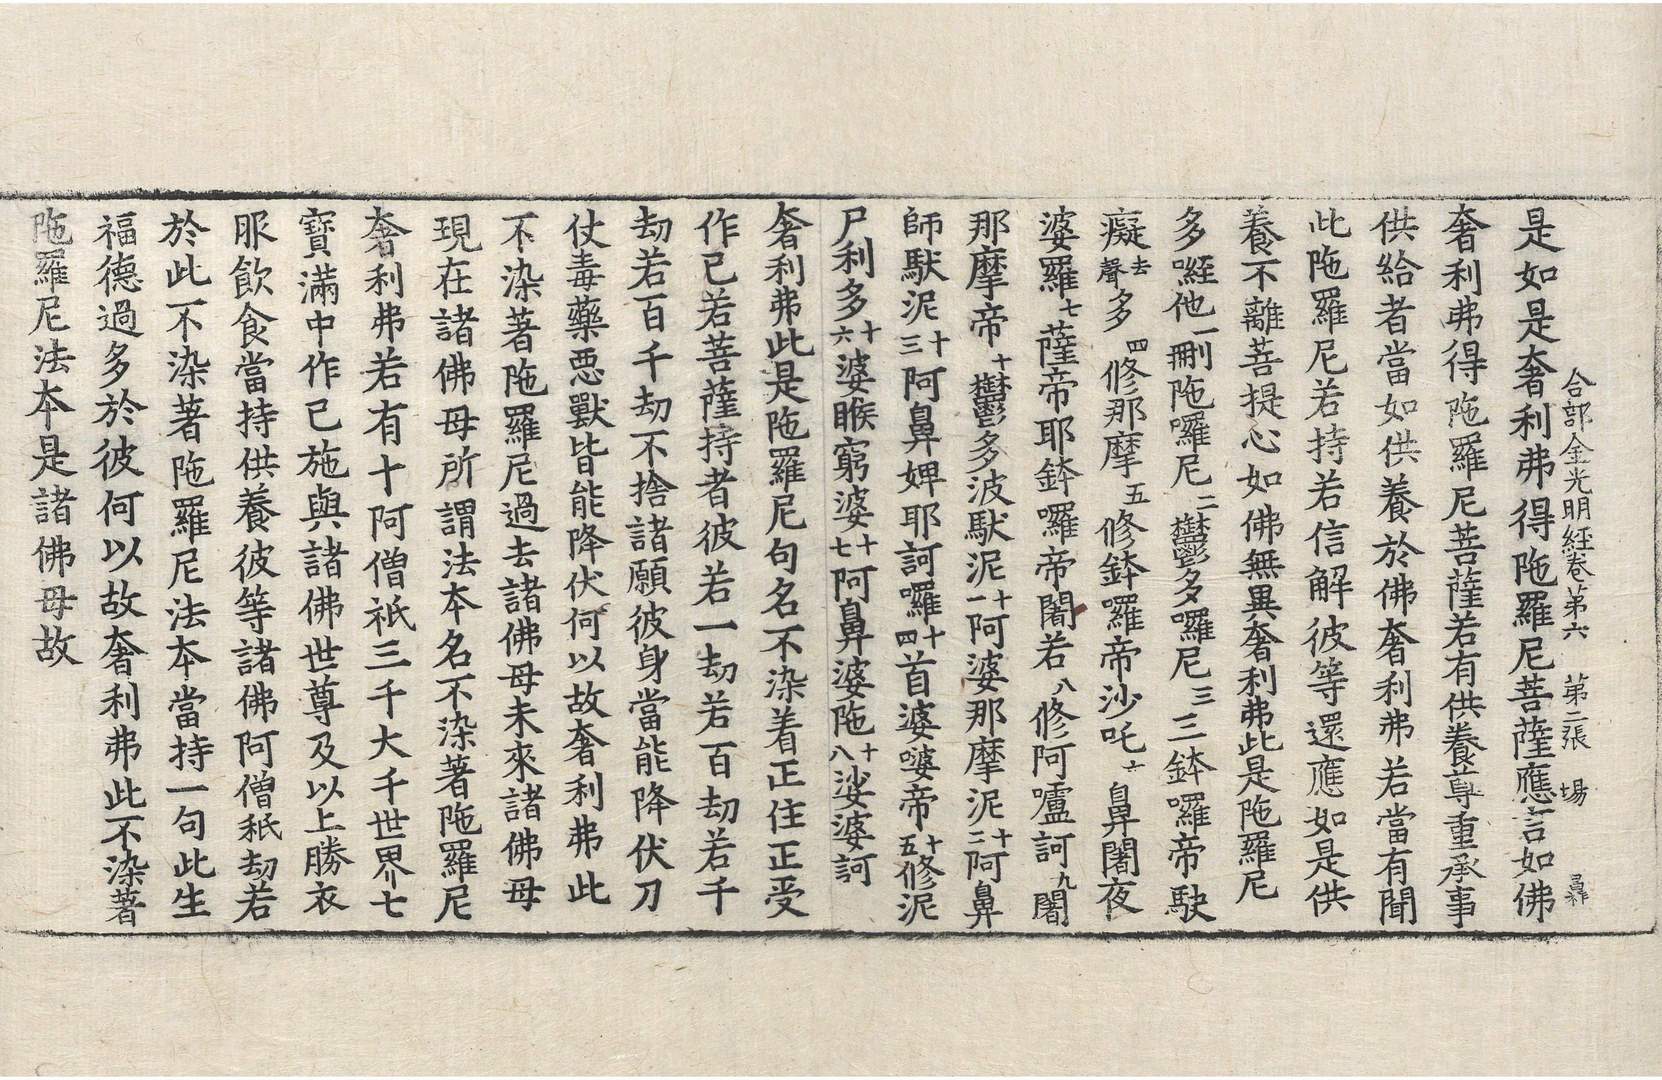 合部金光明經卷第六 第二張 場
是如是奢利弗得陁羅尼菩薩應言如佛
奢利弗得陁羅尼菩薩若有供養尊重承事
供給者當如供養於佛奢利弗若當有聞
此陁羅尼若持若信解彼等還應如是供
養不離菩提心如佛無異奢利弗此是陁羅尼
多咥他一刪陁囉尼二欝多囉尼三三鉢囉帝駛
癡去聲多四修那摩五修鉢囉帝沙吒六鼻闍夜
婆羅七薩帝耶鉢囉帝闍若八修阿嚧訶九闍
那摩帝十欝多波馱泥十一阿婆那摩泥十二阿鼻
師馱泥十三阿鼻婢耶訶囉十四首婆嘙帝十五修泥
尸利多十六婆睺窮婆十七阿鼻婆陁十八娑婆訶
奢利弗此是陁羅尼句名不染着正住正受
作已若菩薩持者彼若一劫若百劫若千
劫若百千劫不捨諸願彼身當能降伏刀
仗毒藥悪獸皆能降伏何以故奢利弗此
不染著陁羅尼過去諸佛母未來諸佛母
現在諸佛母所謂法本名不染著陁羅尼
奢利弗若有十阿僧祇三千大千世界七
寶滿中作已施與諸佛世尊及以上勝衣
服飲食當持供養彼等諸佛阿僧秖劫若
於此不染著陁羅尼法本當持一句此生
福德過多於彼何以故奢利弗此不染著
陁羅尼法本是諸佛母故